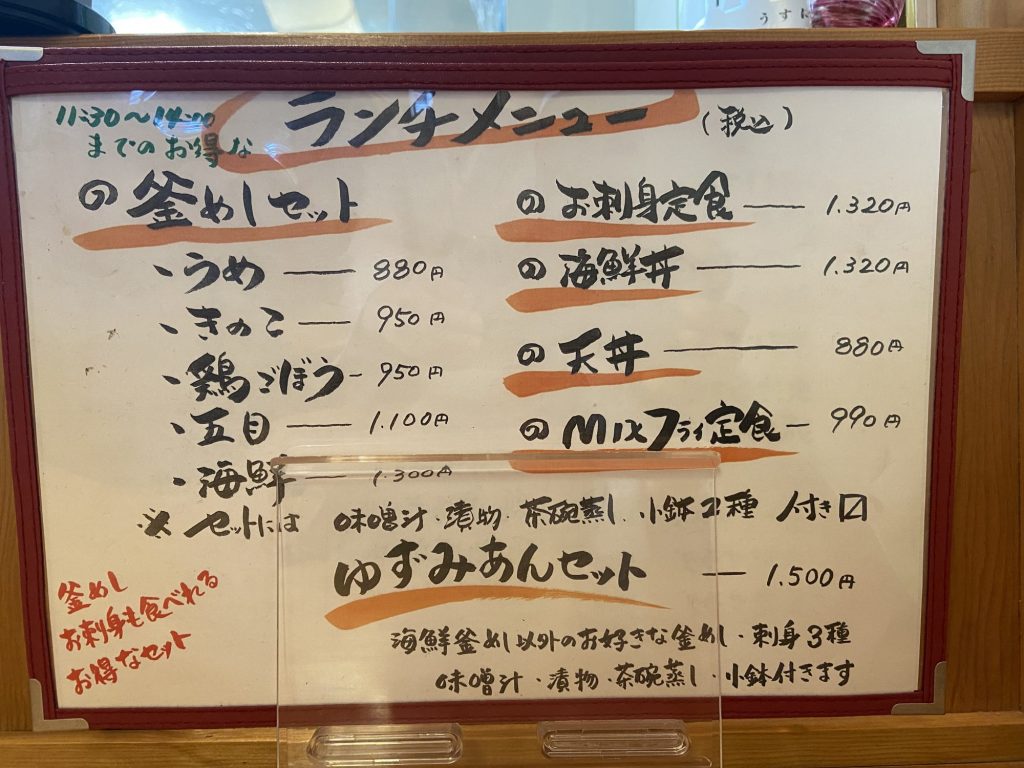 うすに
ランチメニュー (税込)
11:30〜14:00
までのお得な
の 釜めしセット
・うめ — 880円
・きのこ — 950円
・鶏ごぼう - 950円
・五目 — 1.100円
・海鮮 — 1.300円
の お刺身定食 — 1.320円
の 海鮮丼 — 1.320円
の 天丼 — 880円
の MIXフライ定食 — 990円
※ セットには 味噌汁・漬物・茶碗蒸し・小鉢2種 付き〼
ゆずみあんセット — 1.500円
海鮮釜めし以外のお好きな釜めし・刺身3種
味噌汁・漬物・茶碗蒸し・小鉢付きます
釜めし
お刺身も食べれる
お得なセット